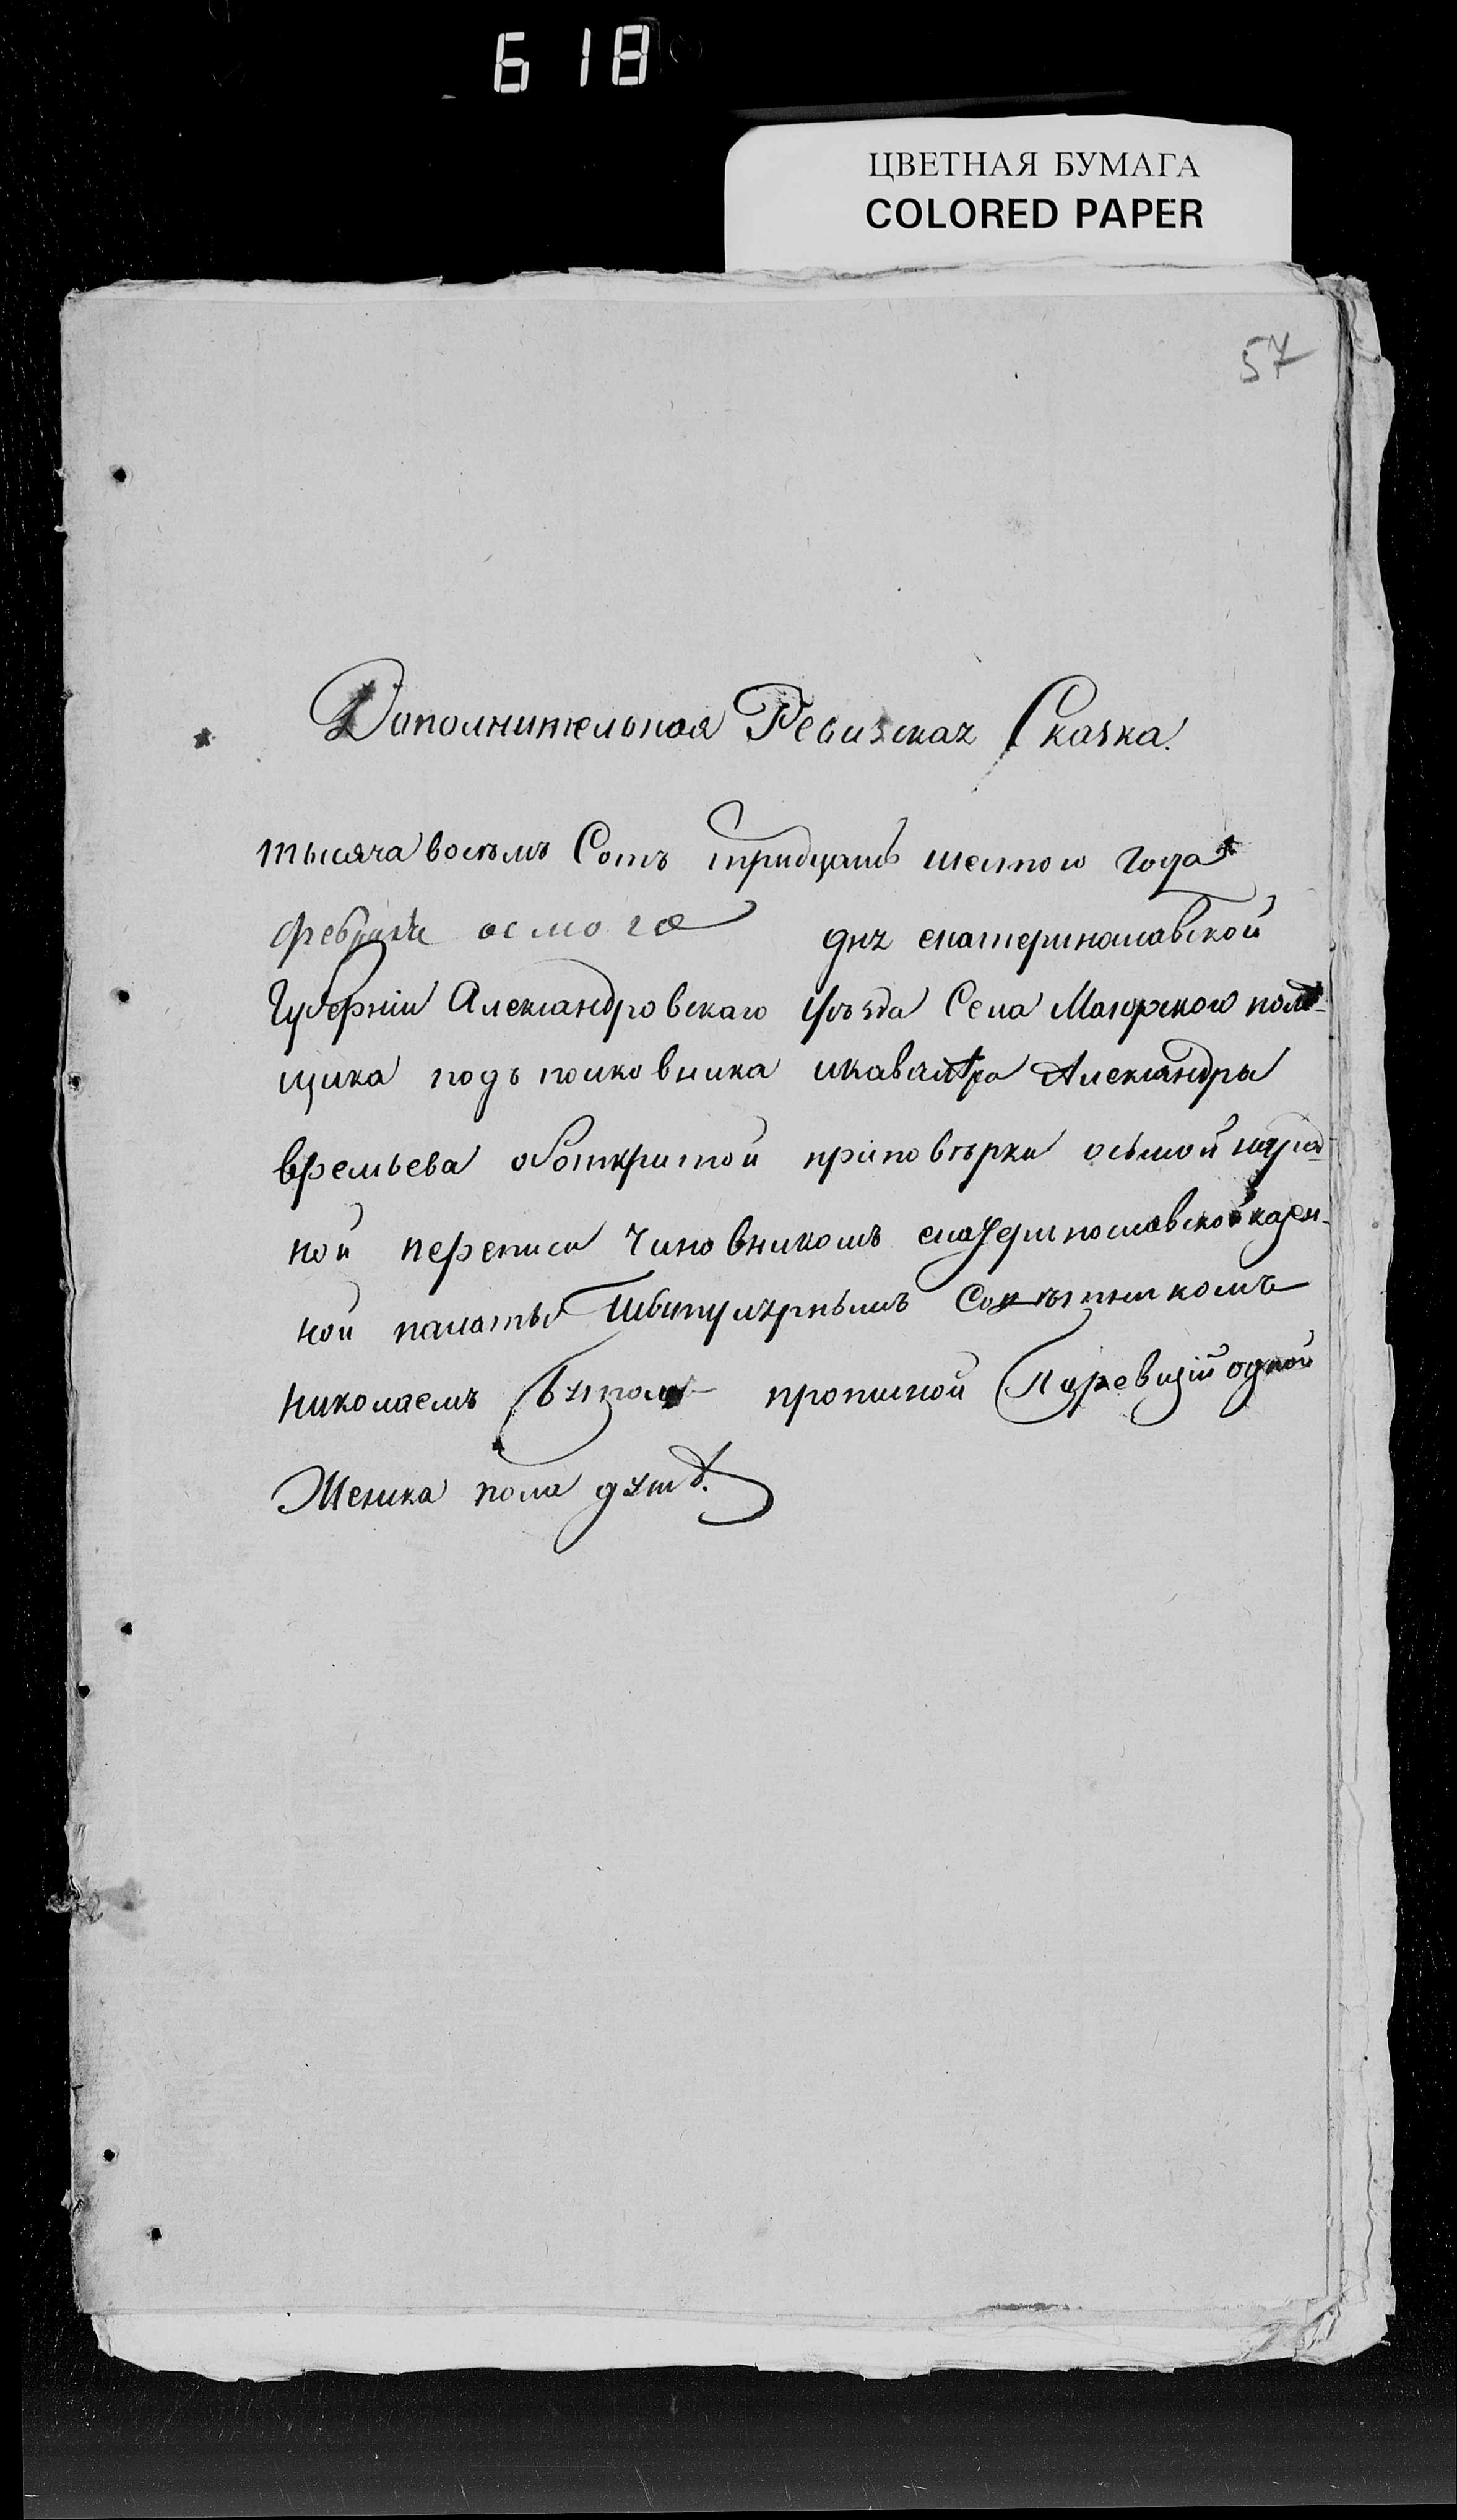 618
ЦВЕТНАЯ БУМАГА
COLORED PAPER
57
Дополнительная Ревизская Сказка.
тысяча восемъ Сотъ тридцать шестого года
февраля осмога дня екатеринославской
Губерніи Александровскаго уѣзда Села Маіорскою поме-
щика подъ полковника икавалера Александра
времьева оботкритой приповѣрки осьмой народ
ной переписи Чиновникомъ екатеринославской казен-
ной палаты Титулярнымъ Совѣтникомъ
николаемъ пропиской Поревизіи одной
Женска пола душѣ.